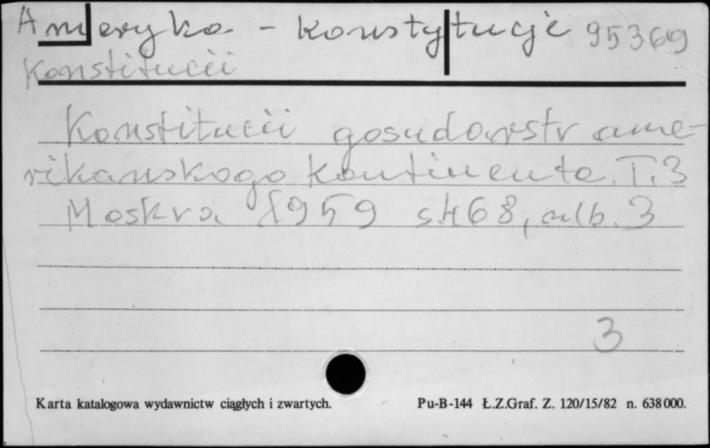 Ameryka - konstytucje 95369
Konstitucii
Konstitucii gosudarstv ame-
rikanskogo kontinenta. T.3
Moskva 1959 s.468, nlb. 3
3
Karta katalogowa wydawnictw ciągłych i zwartych. Pu-B-144 Ł.Z.Graf. Z. 120/15/82 n. 638000.